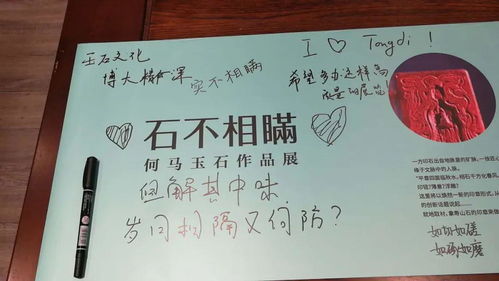 玉石文化
博大精深
实不相瞒
I ♡ Tongdi !
希望多办这样高
质量的展览
石不相瞞
何马玉石作品展
但解其中味
岁月相隔又何防?
一方印石出自地质里的矿脉，一枝匠心
缘于文脉中的人脉。
如切如磋
如琢如磨